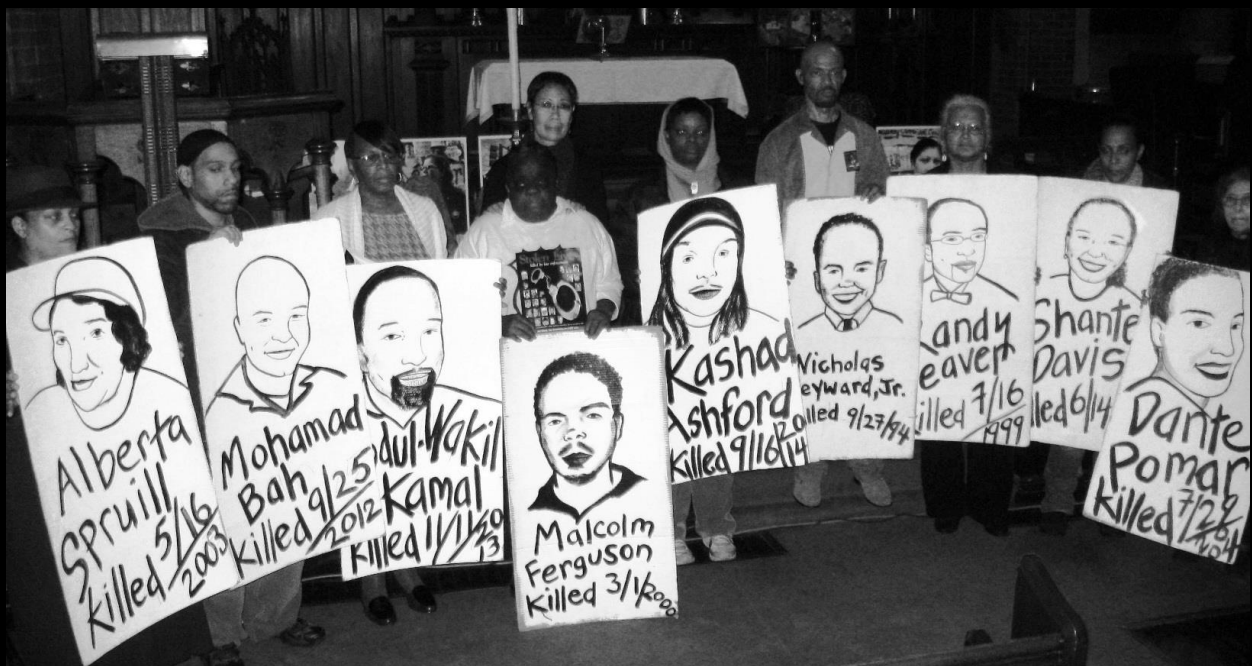 Alberta
Spruill
killed 5/16
2003
Mohamad
Bah
killed 9/25
2012
dul-Wakil
Kamal
killed 11/11/20
13
Malcolm
Ferguson
killed 3/1/2000
Kashad
Ashford
killed 9/16/20
14
Nicholas
eyward, Jr.
illed 9/27/94
andy
eaver
illed 7/16
1999
Shante
Davis
lled 6/14
Dante
Pomar
killed 7/29
2004